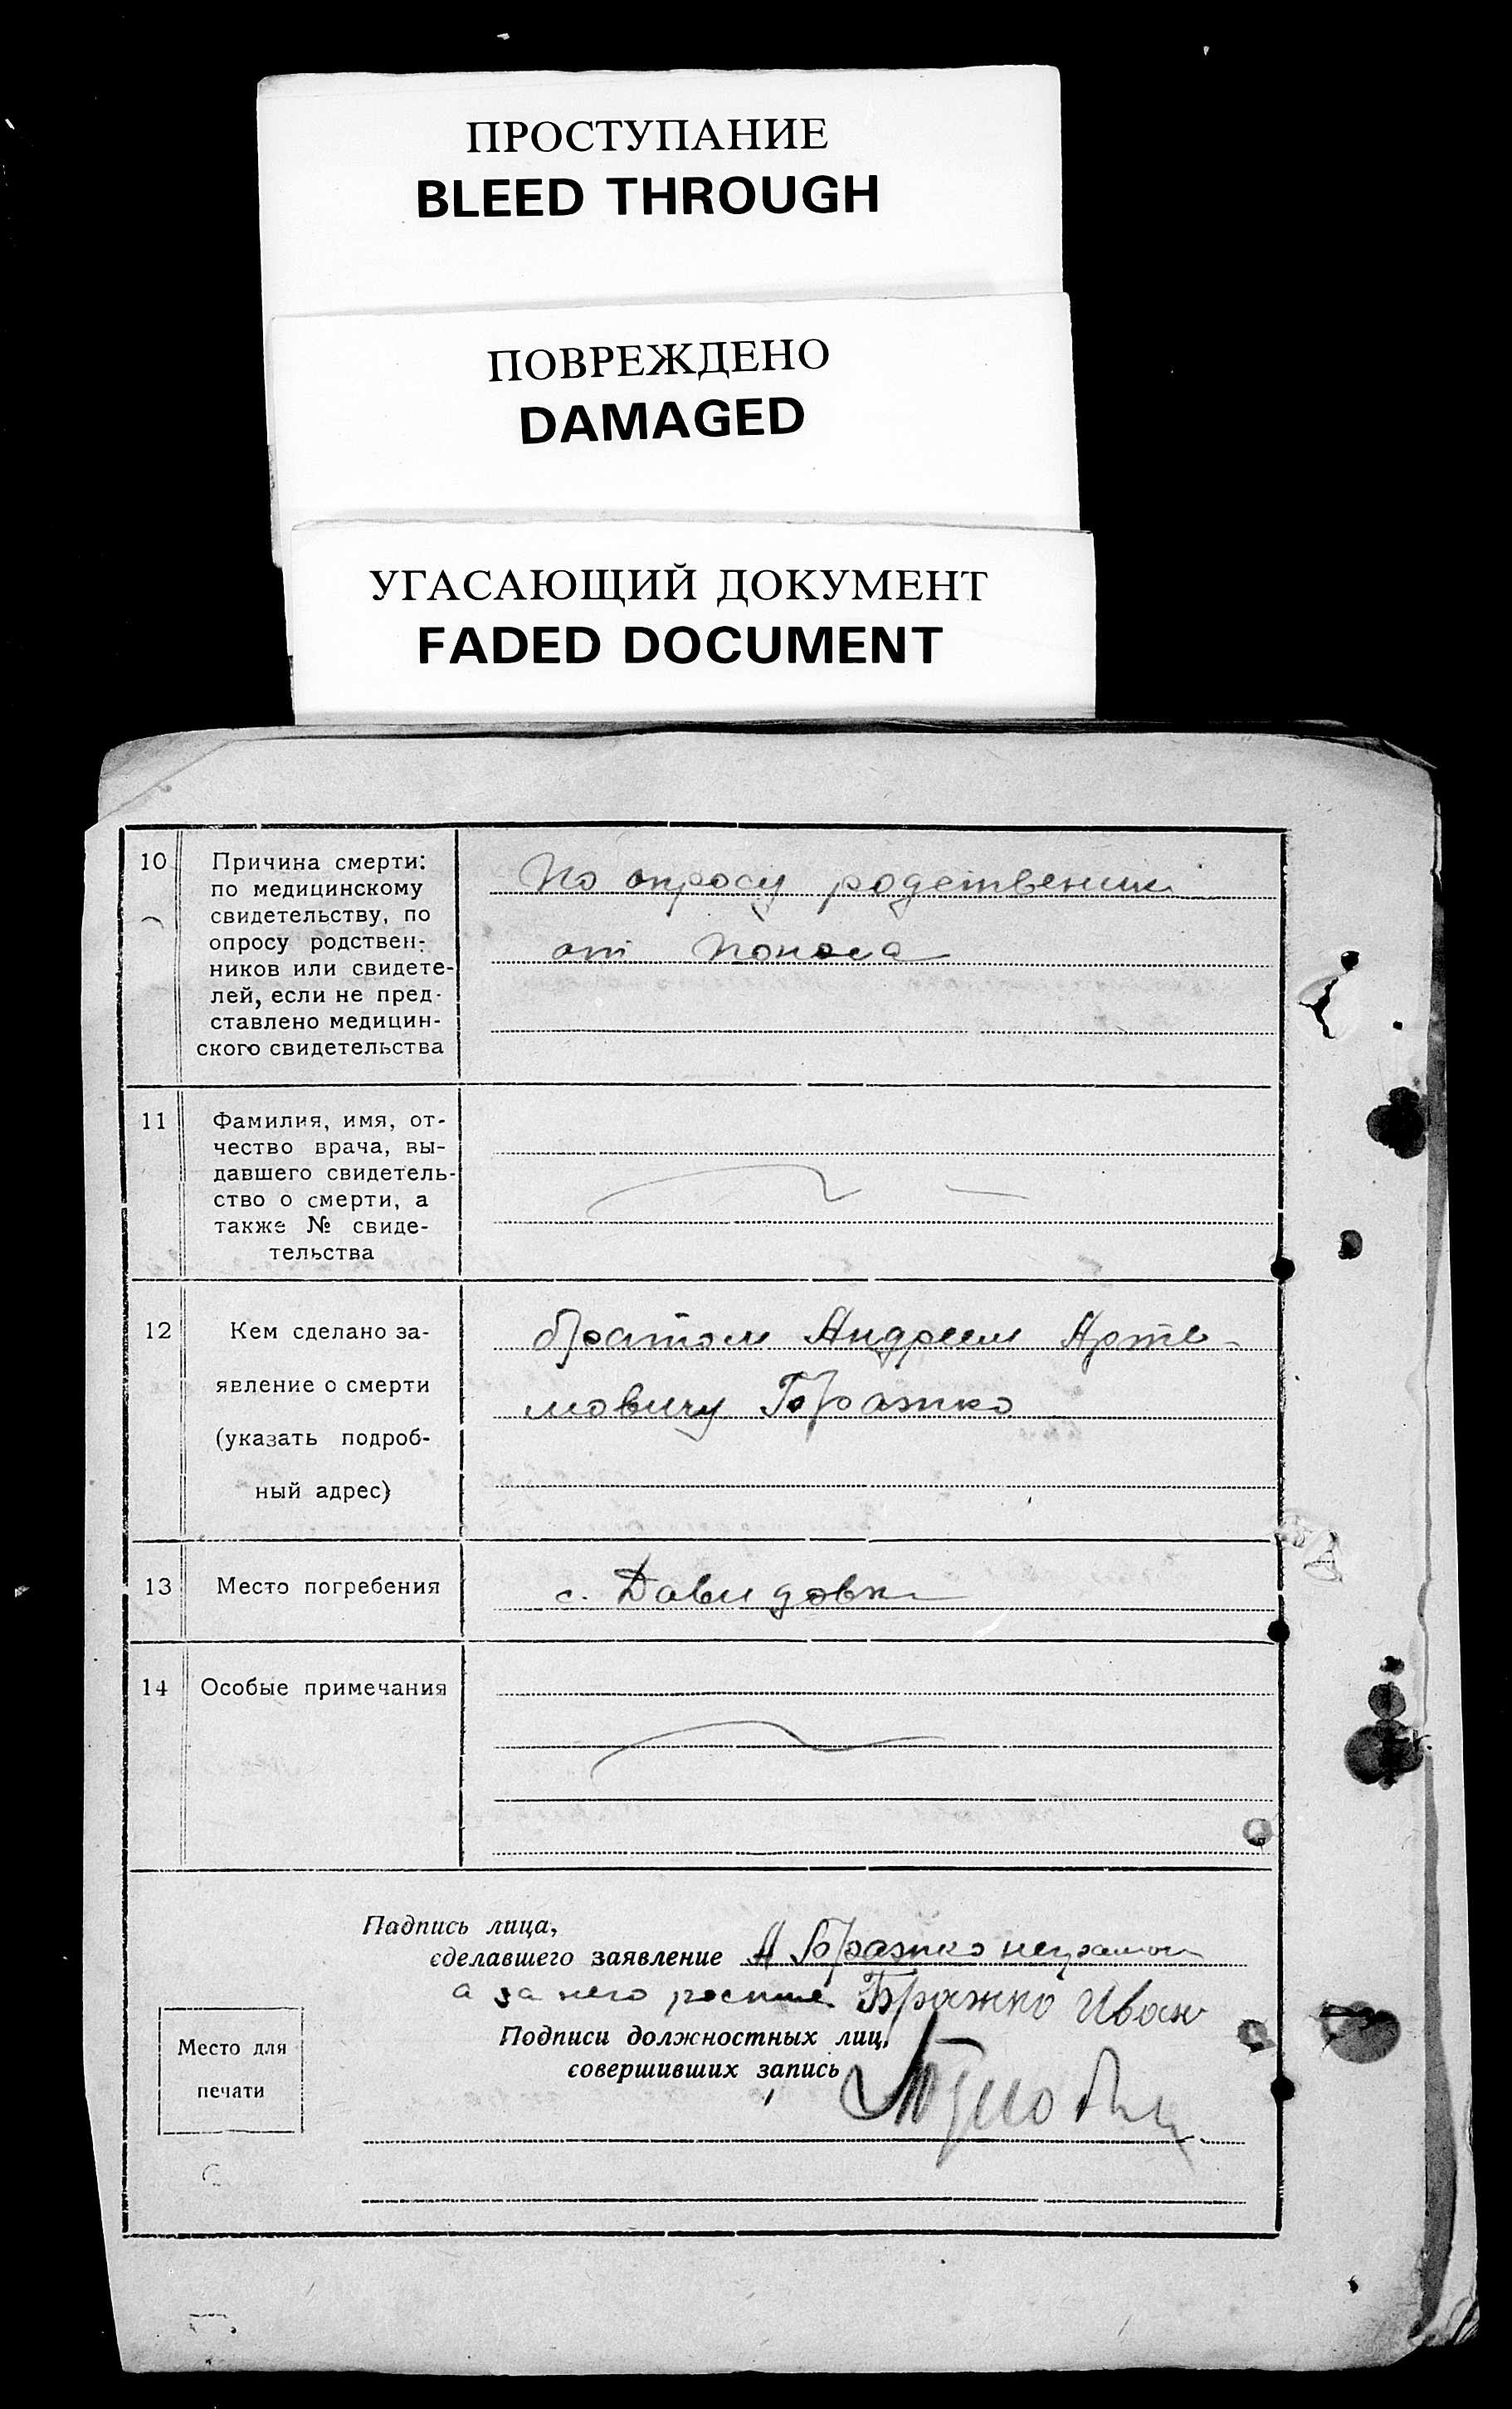 ПРОСТУПАНИЕ
BLEED THROUGH
ПОВРЕЖДЕНО
DAMAGED
УГАСАЮЩИЙ ДОКУМЕНТ
FADED DOCUMENT
10
Причина смерти:
по медицинскому
свидетельству, по
опросу родствен-
ников или свидете-
лей, если не пред-
ставлено медицин-
ского свидетельства
По опросу родственик
от поноса
11
Фамилия, имя, от-
чество врача, вы-
давшего свидетель-
ство о смерти, а
также № свиде-
тельства
12
Кем сделано за-
явление о смерти
(указать подроб-
ный адрес)
братом Андреем Арте-
мовичу Бражко
13
Место погребения
с. Давидовка
14
Особые примечания
Падпись лица,
сделавшего заявление А Бражко неграмот
а за него роспис Бражко Иван
Подписи должностных лиц,
совершивших запись
Место для
печати